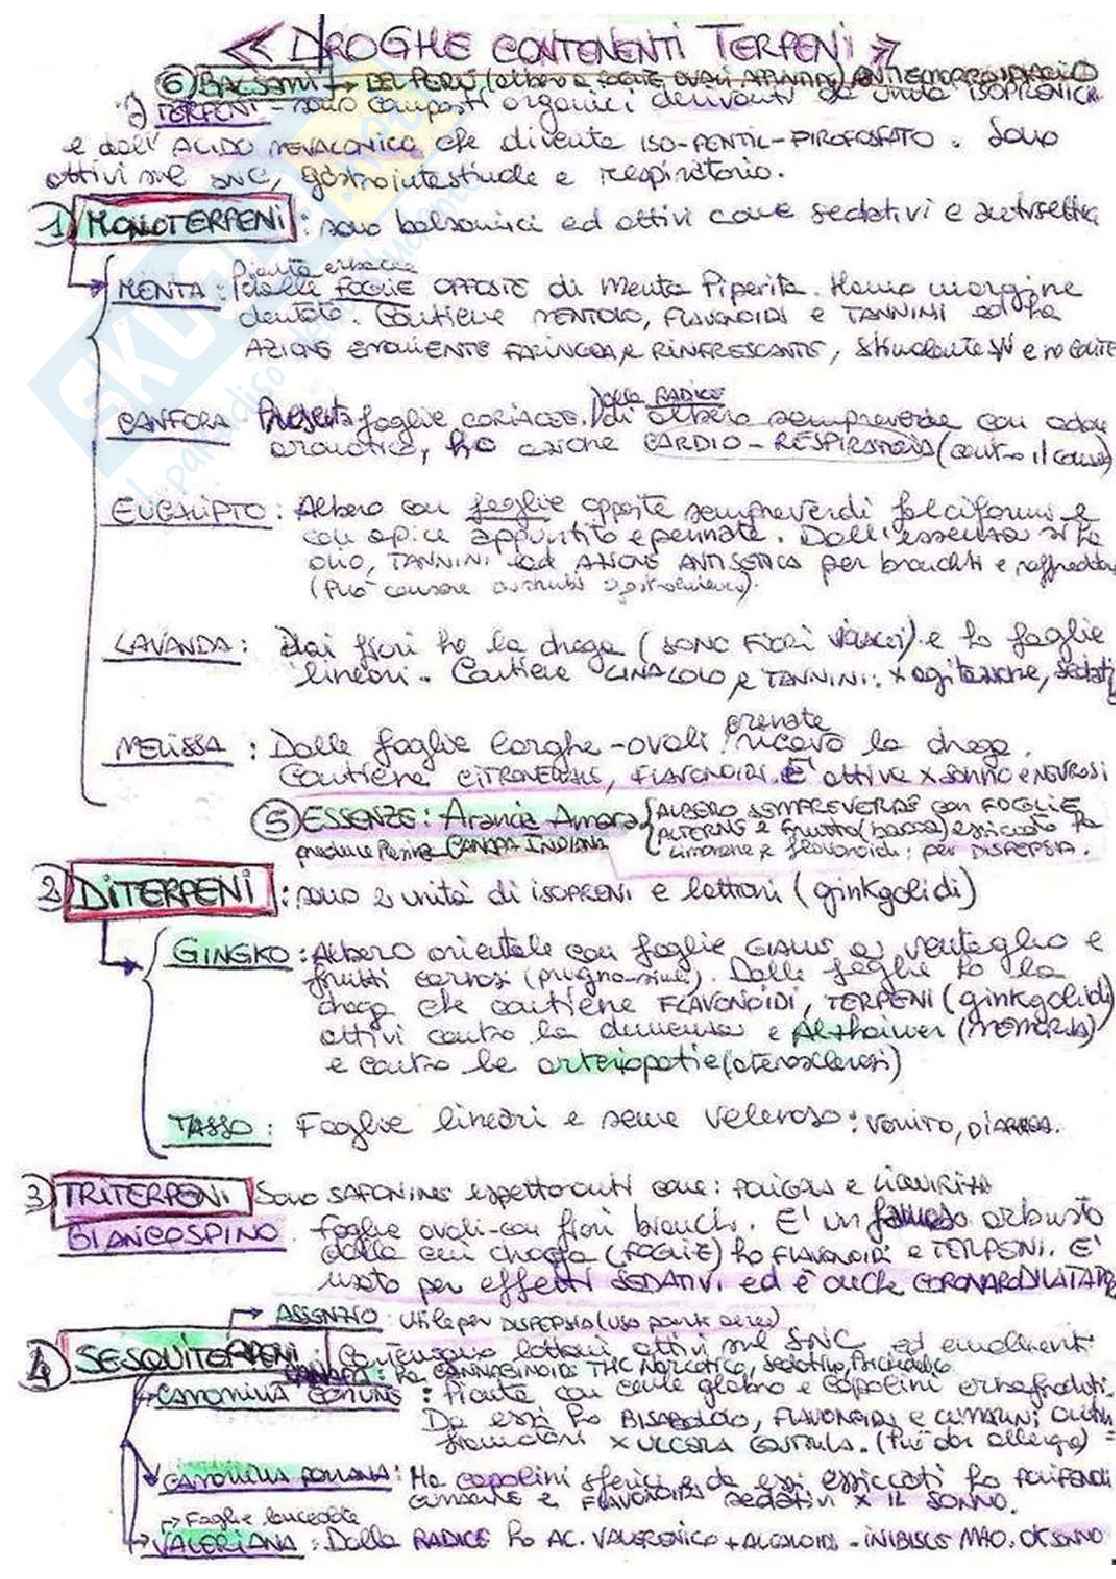 « DROGHE CONTENENTI TERPENI »
⑥ BALSAMI → DEL PERÙ (albero a FOGLIE OVALI APPUNTITE) ANTIEMORROIDARIO
TERPENI - sono composti organici derivanti da unità ISOPRENICA
e dall'ACIDO MEVALONICO che diventa ISO-PENTIL-PIROFOSFATO. Sono
attivi sul SNC, gastrointestinale e respiratorio.
1) MONOTERPENI: sono balsamici ed attivi come sedativi e antisettici
Pianta erbacea
MENTA: Dalle FOGLIE OPPOSTE di Menta Piperita. Hanno margine
dentato. Contiene MENTOLO, FLAVONOIDI e TANNINI ed ha
AZIONE EMOLLIENTE FARINGEA, e RINFRESCANTE, stimolante e no COLITE
Dalla RADICE
CANFORA Presenta foglie coriacee. di albero sempreverde con odore
aromatico, ha azione CARDIO-RESPIRATORIA (contro il coma)
EUCALIPTO: Albero con foglie opposte sempreverdi falciformi e
con apice appuntito e pennate. Dall'essenza si ha
olio, TANNINI ed AZIONE ANTISETTICA per bronchiti e raffreddore
(Può causare disturbi gastrointest.).
LAVANDA: Dai fiori ho la droga (SONO FIORI VIOLACEI) e ha foglie
lineari. Contiene LINALOLO e TANNINI: x agitazione, sedativo
crenate
MELISSA: Dalle foglie larghe-ovali ricavo la droga.
Contiene CITRONELLALE, FLAVONOIDI. È attiva x SONNO e NEVROSI
⑤ ESSENZE: Arancia Amara ALBERO SEMPREVERDE con FOGLIE
ALTERNE e frutto (bacca) essiccato ha
produce Resina CANAPA INDIANA limonene e flavonoidi: per DISPEPSIA.
2) DITERPENI: sono 4 unità di ISOPRENI e lattoni (ginkgolidi)
GINGKO: Albero orientale con foglie GIALLE a ventaglio e
frutti carnosi (prugna-simili). Dalle foglie ho la
droga che contiene FLAVONOIDI, TERPENI (ginkgolidi)
attivi contro la demenza e Alzhaimer (MEMORIA)
e contro le arteriopatie (aterosclerosi)
TASSO: Foglie lineari e seme velenoso: VOMITO, DIARREA.
3) TRITERPENI Sono SAPONINE espettoranti come: POLIGALA e LIQUIRIZIA
BIANCOSPINO. foglie ovali-con fiori bianchi. E' un famoso arbusto
dalla cui droga (FOGLIE) ho FLAVONOIDI e TERPENI. E'
usato per effetti SEDATIVI ed è anche CORONARODILATATORE
→ ASSENZIO: Utile per DISPEPSIA (uso parti aeree)
4) SESQUITERPENI: Contengono lattoni attivi sul SNC ed emollienti
CANAPA: ha CANNABINOIDI THC Narcotico, Sedativo, Psichedelico
CAMOMILLA COMUNE: Pianta con caule glabro e capolini ermafroditi.
Da essi ho BISABOLOLO, FLAVONOIDI e CUMARINE; antinfiammatori
x ULCERA GASTRICA. (Può dar allergia)
CAMOMILLA ROMANA: Ha capolini sferici e da essi essiccati ho POLIFENOLI
CUMARINE e FLAVONOIDI sedativi x IL SONNO.
→ Foglie lanceolate
VALERIANA: Dalla RADICE ho AC. VALERENICO + ALCALOIDI - INIBISCE MAO. OK SONNO
SKUOLA.net
il paradiso dello studente